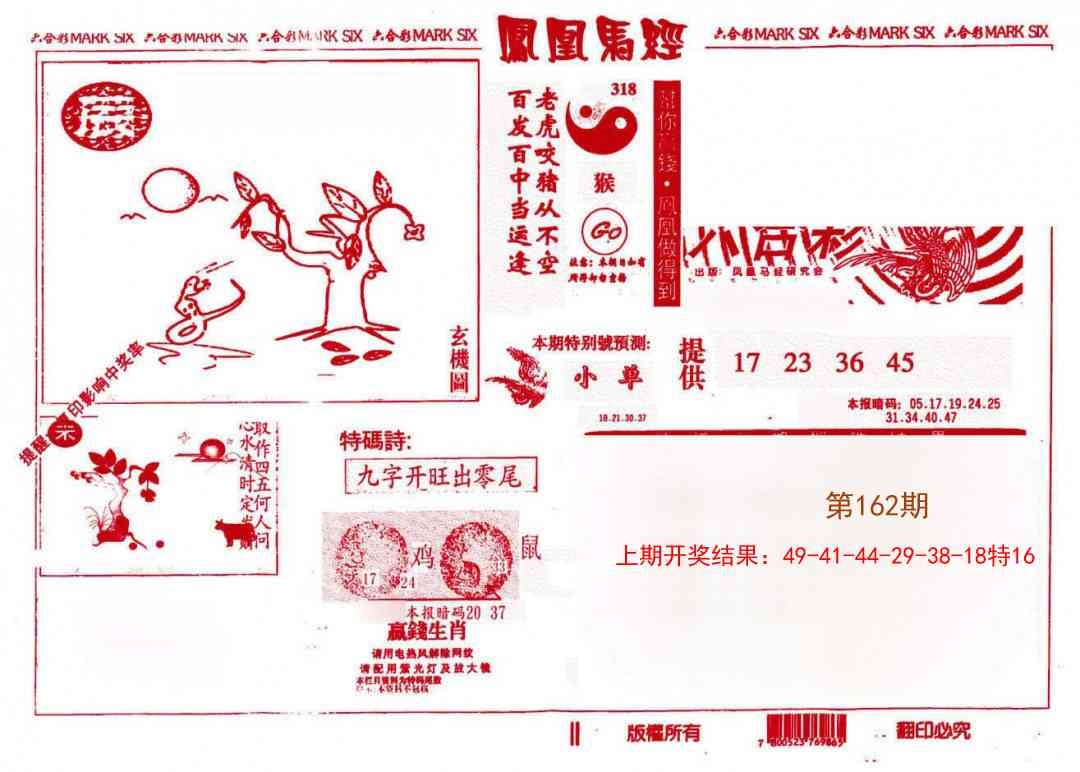 六合彩MARK SIX 六合彩MARK SIX 六合彩MARK SIX 六合彩MARK SIX
鳳凰馬經
六合彩MARK SIX 六合彩MARK SIX 六合彩MARK SIX
老虎咬猪从不空
百发百中当运逢
318
猴
Go
幫你 錢·鳳凰做得到
出版：凤凰马经研究会
玄機圖
提醒 印影响中奖率
本期特别號預测:
小单
18.21.30.37
提供
17 23 36 45
本报暗码：05.17.19.24.25
31.34.40.47
取作四五何人问
心水清时定发财
特碼詩:
九字开旺出零尾
鸡
鼠
17
24
33
本报暗码20 37
赢錢生肖
请用电热风解除网纹
请配用紫光灯及放大镜
第162期
上期开奖结果：49-41-44-29-38-18特16
版權所有
7 800523 769865
翻印必究